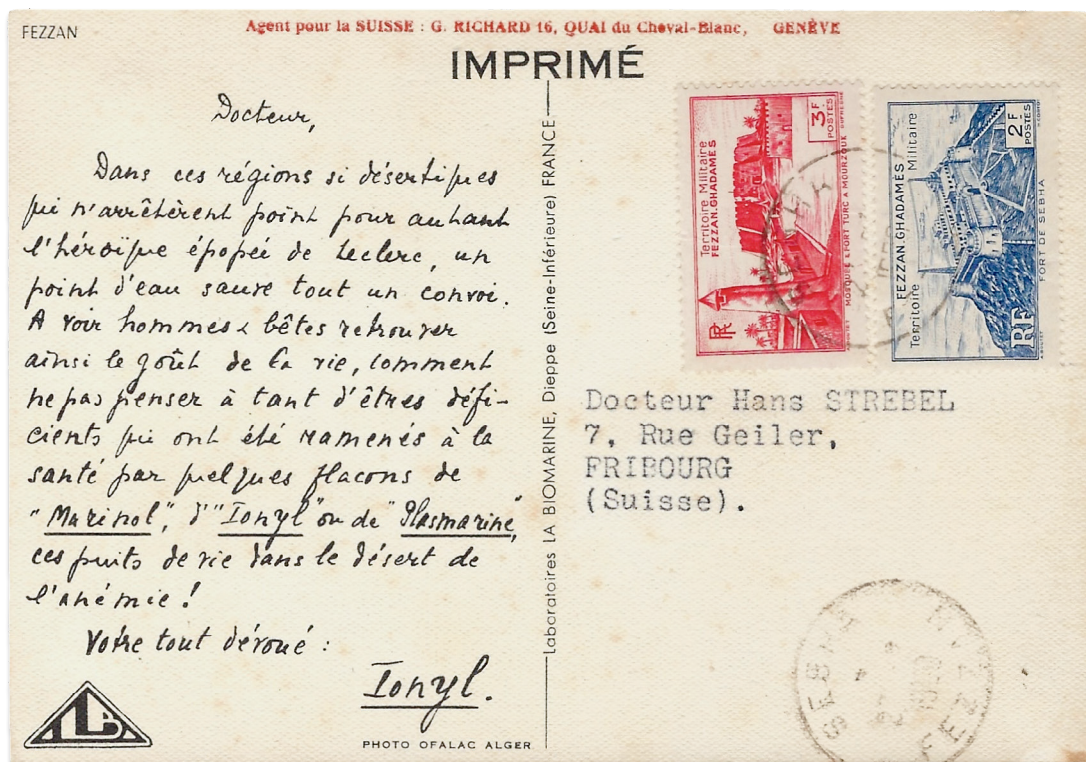 FEZZAN
Agent pour la SUISSE : G. RICHARD 16, QUAI du Cheval-Blanc, GENÈVE
IMPRIMÉ
Docteur,
Dans ces régions si désertiques
qui n'arrêtèrent point pour autant
l'héroïque épopée de Leclerc, un
point d'eau sauve tout un convoi.
A voir hommes & bêtes retrouver
ainsi le goût de la vie, comment
ne pas penser à tant d'êtres défi-
cients qui ont été ramenés à la
santé par quelques flacons de
"Marinol", d'"Ionyl" ou de "Plasmarine",
ces puits de vie dans le désert de
l'anémie !
Votre tout dévoué :
Ionyl.
PHOTO OFALAC ALGER
Laboratoires LA BIOMARINE, Dieppe (Seine-Inférieure) FRANCE
Territoire Militaire
FEZZAN.GHADAMES
3F
POSTES
MOSQUÉE & FORT TURC A MOURZOUK
RF
Territoire Militaire
FEZZAN.GHADAMES
2F
POSTES
FORT DE SEBHA
RF
Docteur Hans STREBEL
7, Rue Geiler,
FRIBOURG
(Suisse).
SEBHA
FEZZAN